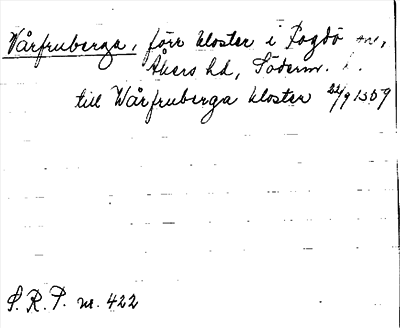 Vårfruberga, förr kloster i Fogdö sn,
Åkers hd, Söderm. l.
till Wårfruberga kloster 22/9 1509
S. R. P. nr. 422